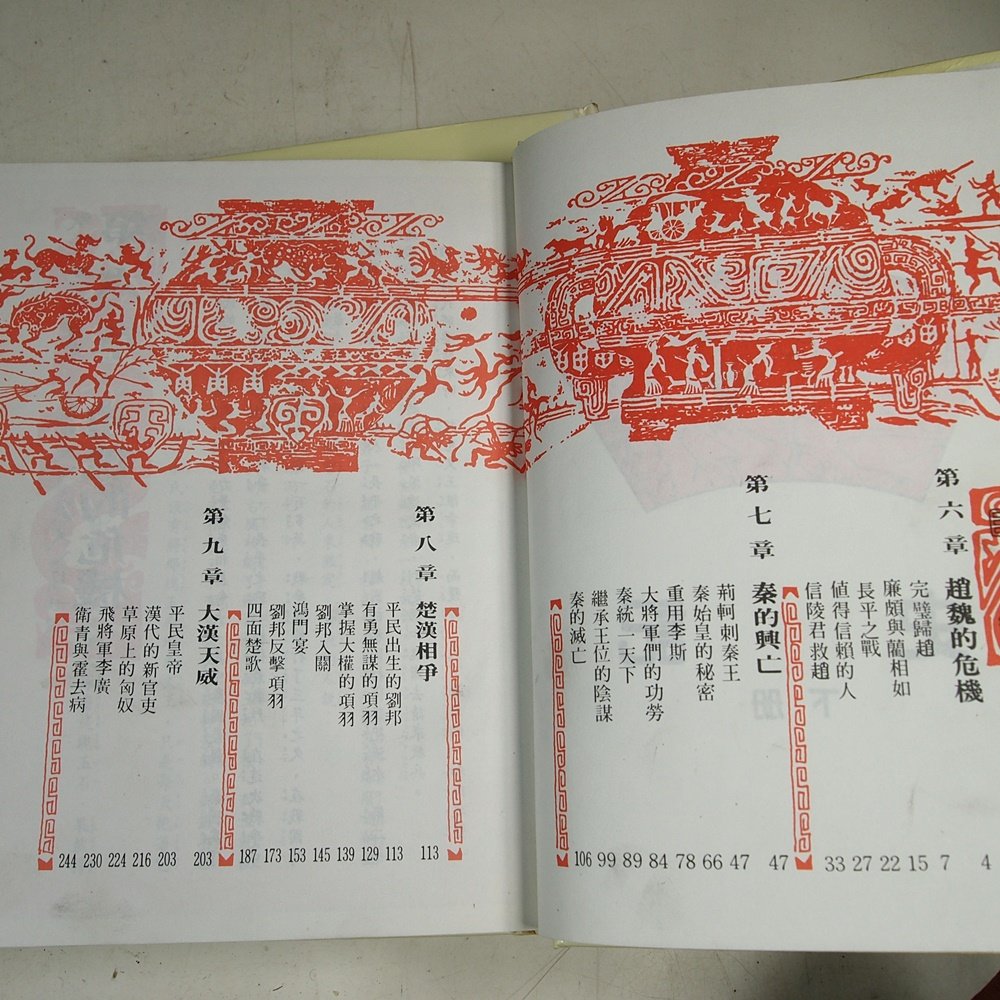 第六章 趙魏的危機 4
完璧歸趙 7
廉頗與藺相如 15
長平之戰 22
值得信賴的人 27
信陵君救趙 33
第七章 秦的興亡 47
荊軻刺秦王 47
秦始皇的秘密 66
重用李斯 78
大將軍們的功勞 84
秦統一天下 89
繼承王位的陰謀 99
秦的滅亡 106
第八章 楚漢相爭 113
平民出生的劉邦 113
有勇無謀的項羽 129
掌握大權的項羽 139
劉邦入關 145
鴻門宴 153
劉邦反擊項羽 173
四面楚歌 187
第九章 大漢天威 203
平民皇帝 203
漢代的新官吏 216
草原上的匈奴 224
飛將軍李廣 230
衛青與霍去病 244